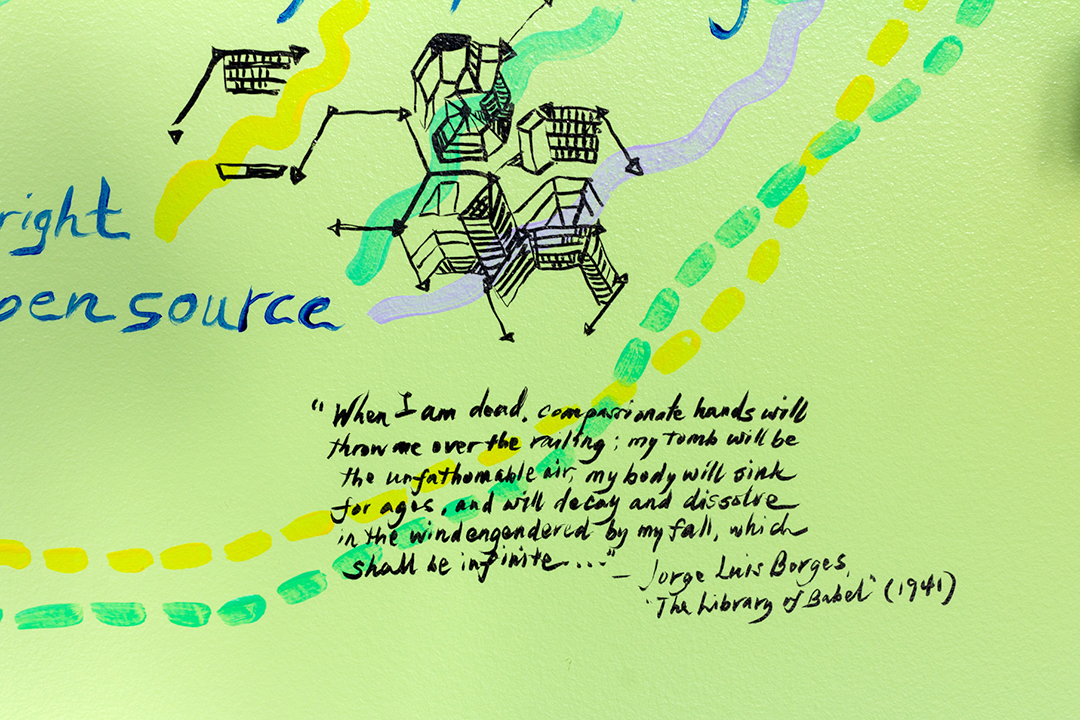 right
pen source
"When I am dead, compassionate hands will
throw me over the railing; my tomb will be
the unfathomable air, my body will sink
for ages, and will decay and dissolve
in the wind engendered by my fall, which
shall be infinite...."
— Jorge Luis Borges,
"The Library of Babel" (1941)